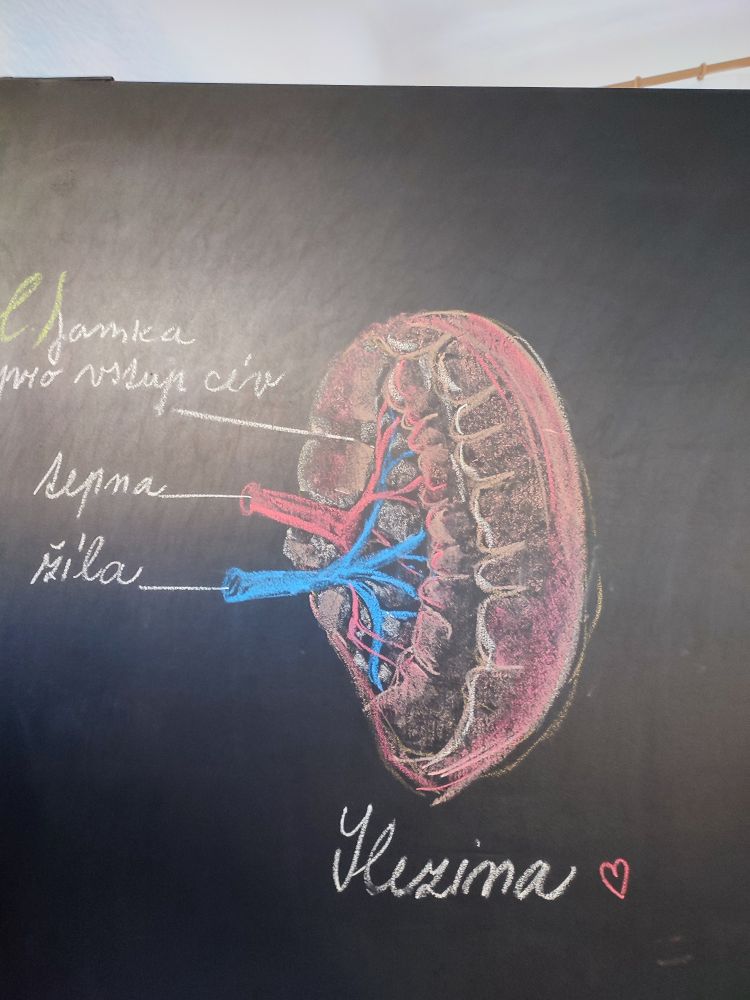 Jamka
pro vstup cév
tepna
žíla
Slezina